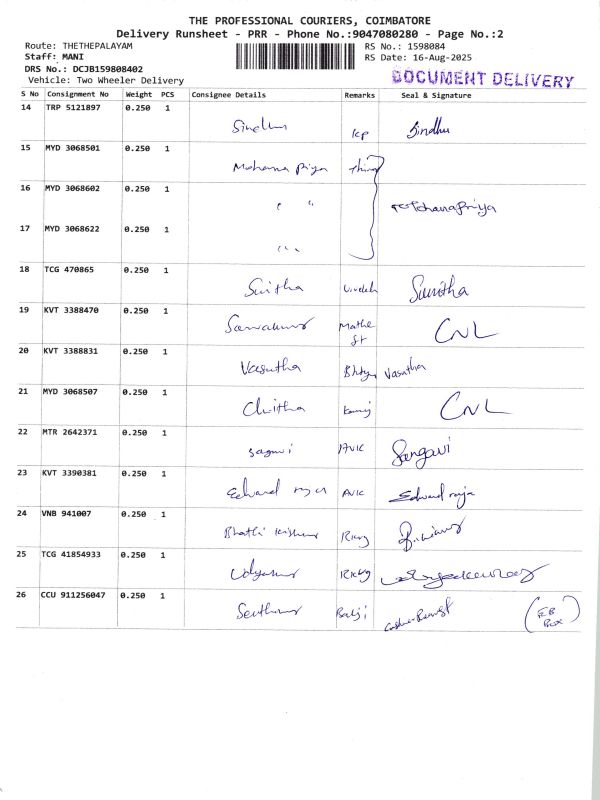 THE PROFESSIONAL COURIERS, COIMBATORE
Delivery Runsheet - PRR - Phone No.:9047080280 - Page No.:2
Route: THETHEPALAYAM RS No.: 1598084
Staff: MANI RS Date: 16-Aug-2025
DRS No.: DCJB159808402
Vehicle: Two Wheeler Delivery DOCUMENT DELIVERY
S No Consignment No Weight PCS Consignee Details Remarks Seal & Signature
14 TRP 5121897 0.250 1
Sindhu KP Sindhu
15 MYD 3068501 0.250 1
Mohana Priya
16 MYD 3068602 0.250 1
" "
17 MYD 3068622 0.250 1
18 TCG 470865 0.250 1
Sunitha
19 KVT 3388470 0.250 1
CNL
20 KVT 3388831 0.250 1
Vasutha Vasutha
21 MYD 3068507 0.250 1
Chitha CNL
22 MTR 2642371 0.250 1
AVIC Sangavi
23 KVT 3390381 0.250 1
Edward raja AVIC Edward raja
24 VNB 941007 0.250 1
25 TCG 41854933 0.250 1
26 CCU 911256047 0.250 1
Balji (EB
Box)